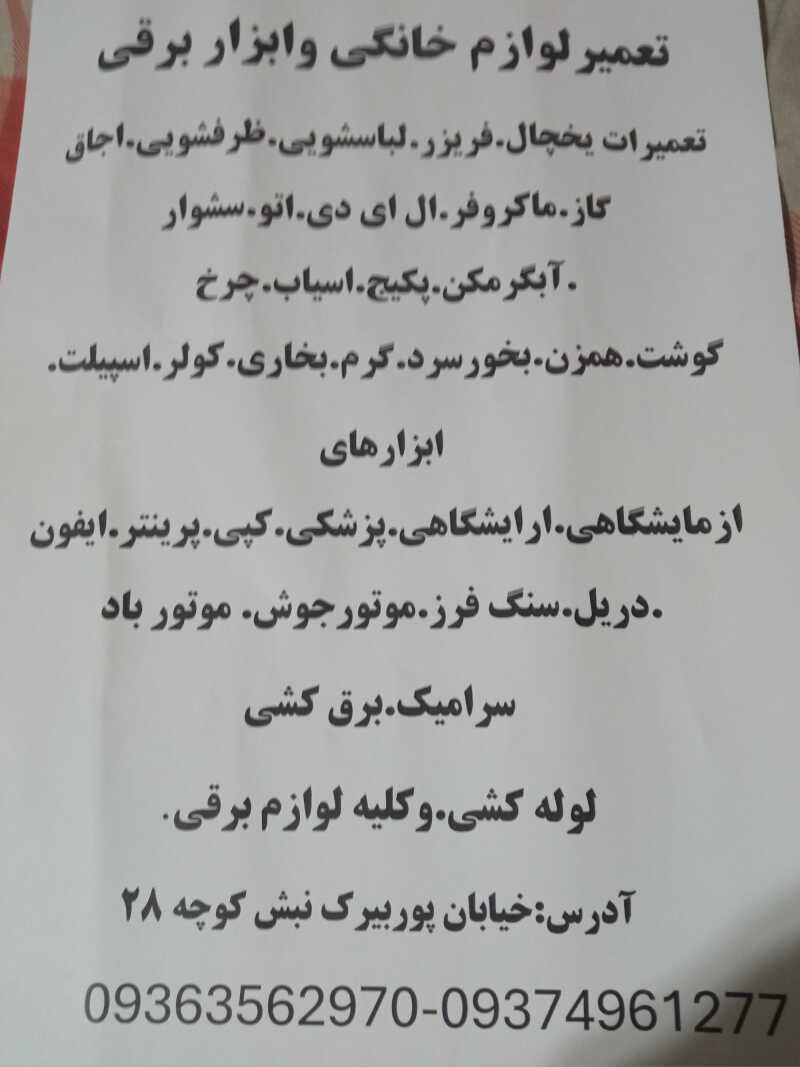 تعمیر لوازم خانگی وابزار برقی
تعمیرات یخچال.فریزر.لباسشویی.ظرفشویی.اجاق
گاز.ماکروفر.ال ای دی.اتو.سشوار
.آبگرمکن.پکیج.اسیاب.چرخ
گوشت.همزن.بخورسرد.گرم.بخاری.کولر.اسپیلت.
ابزارهای
ازمایشگاهی.ارایشگاهی.پزشکی.کپی.پرینتر.ایفون
.دریل.سنگ فرز.موتورجوش. موتور باد
سرامیک.برق کشی
لوله کشی.وکلیه لوازم برقی.
آدرس:خیابان پوربیرک نبش کوچه ۲۸
09363562970-09374961277